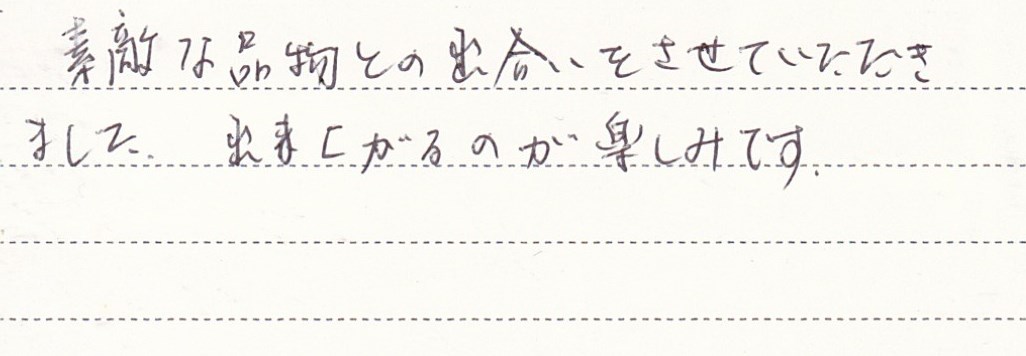 素敵な品物との出合いをさせていただき
ました。 出来上がるのが楽しみです。